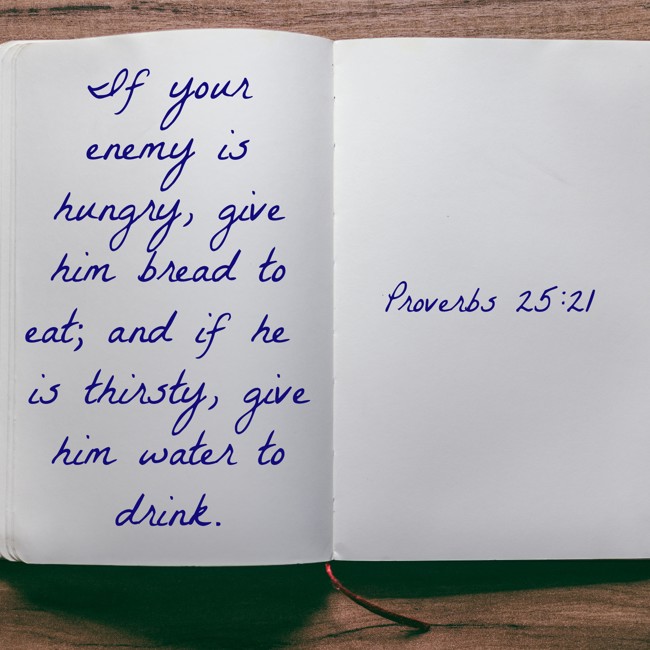 If your
enemy is
hungry, give
him bread to
eat; and if he
is thirsty, give
him water to
drink.
Proverbs 25:21